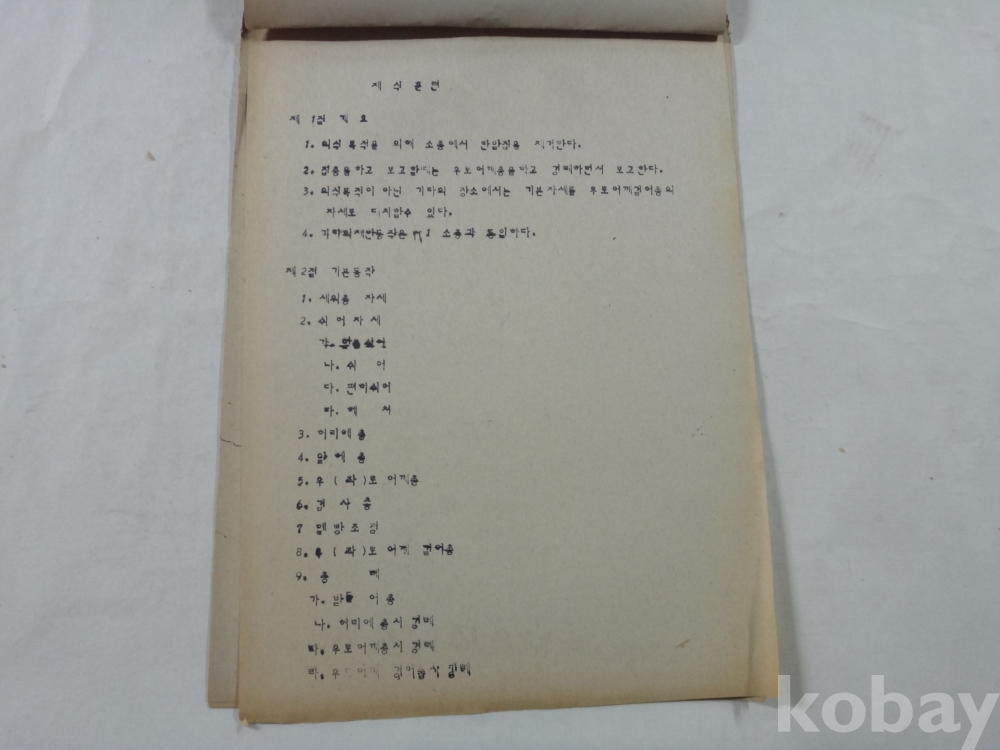 제식훈련
제 1절 개요
1. 의식 복장을 위해 소총에서 탄알집을 제거한다.
2. 집총을하고 보고할때는 우로어깨총을하고 경례하면서 보고한다.
3. 의식복장이 아닌 기타의 장소에서는 기본자세를 우로어깨걸어총의
자세로 대치할수 있다.
4. 소총과 동일하다.
제 2절 기본동작
1. 세워총 자세
2. 쉬어자세
가.
나. 쉬 어
다. 편히쉬어
라. 헤 쳐
3. 허리에총
4. 앞에총
5. 우 ( 좌 )로 어깨총
6. 검 사 총
7 멜빵조절
8. ( 좌 )로 어깨 걸어총
9. 총 례
가. 받들 어총
나. 허리에총시 경례
다. 우로어깨총시 경례
라. 걸어총시 경례
kobay